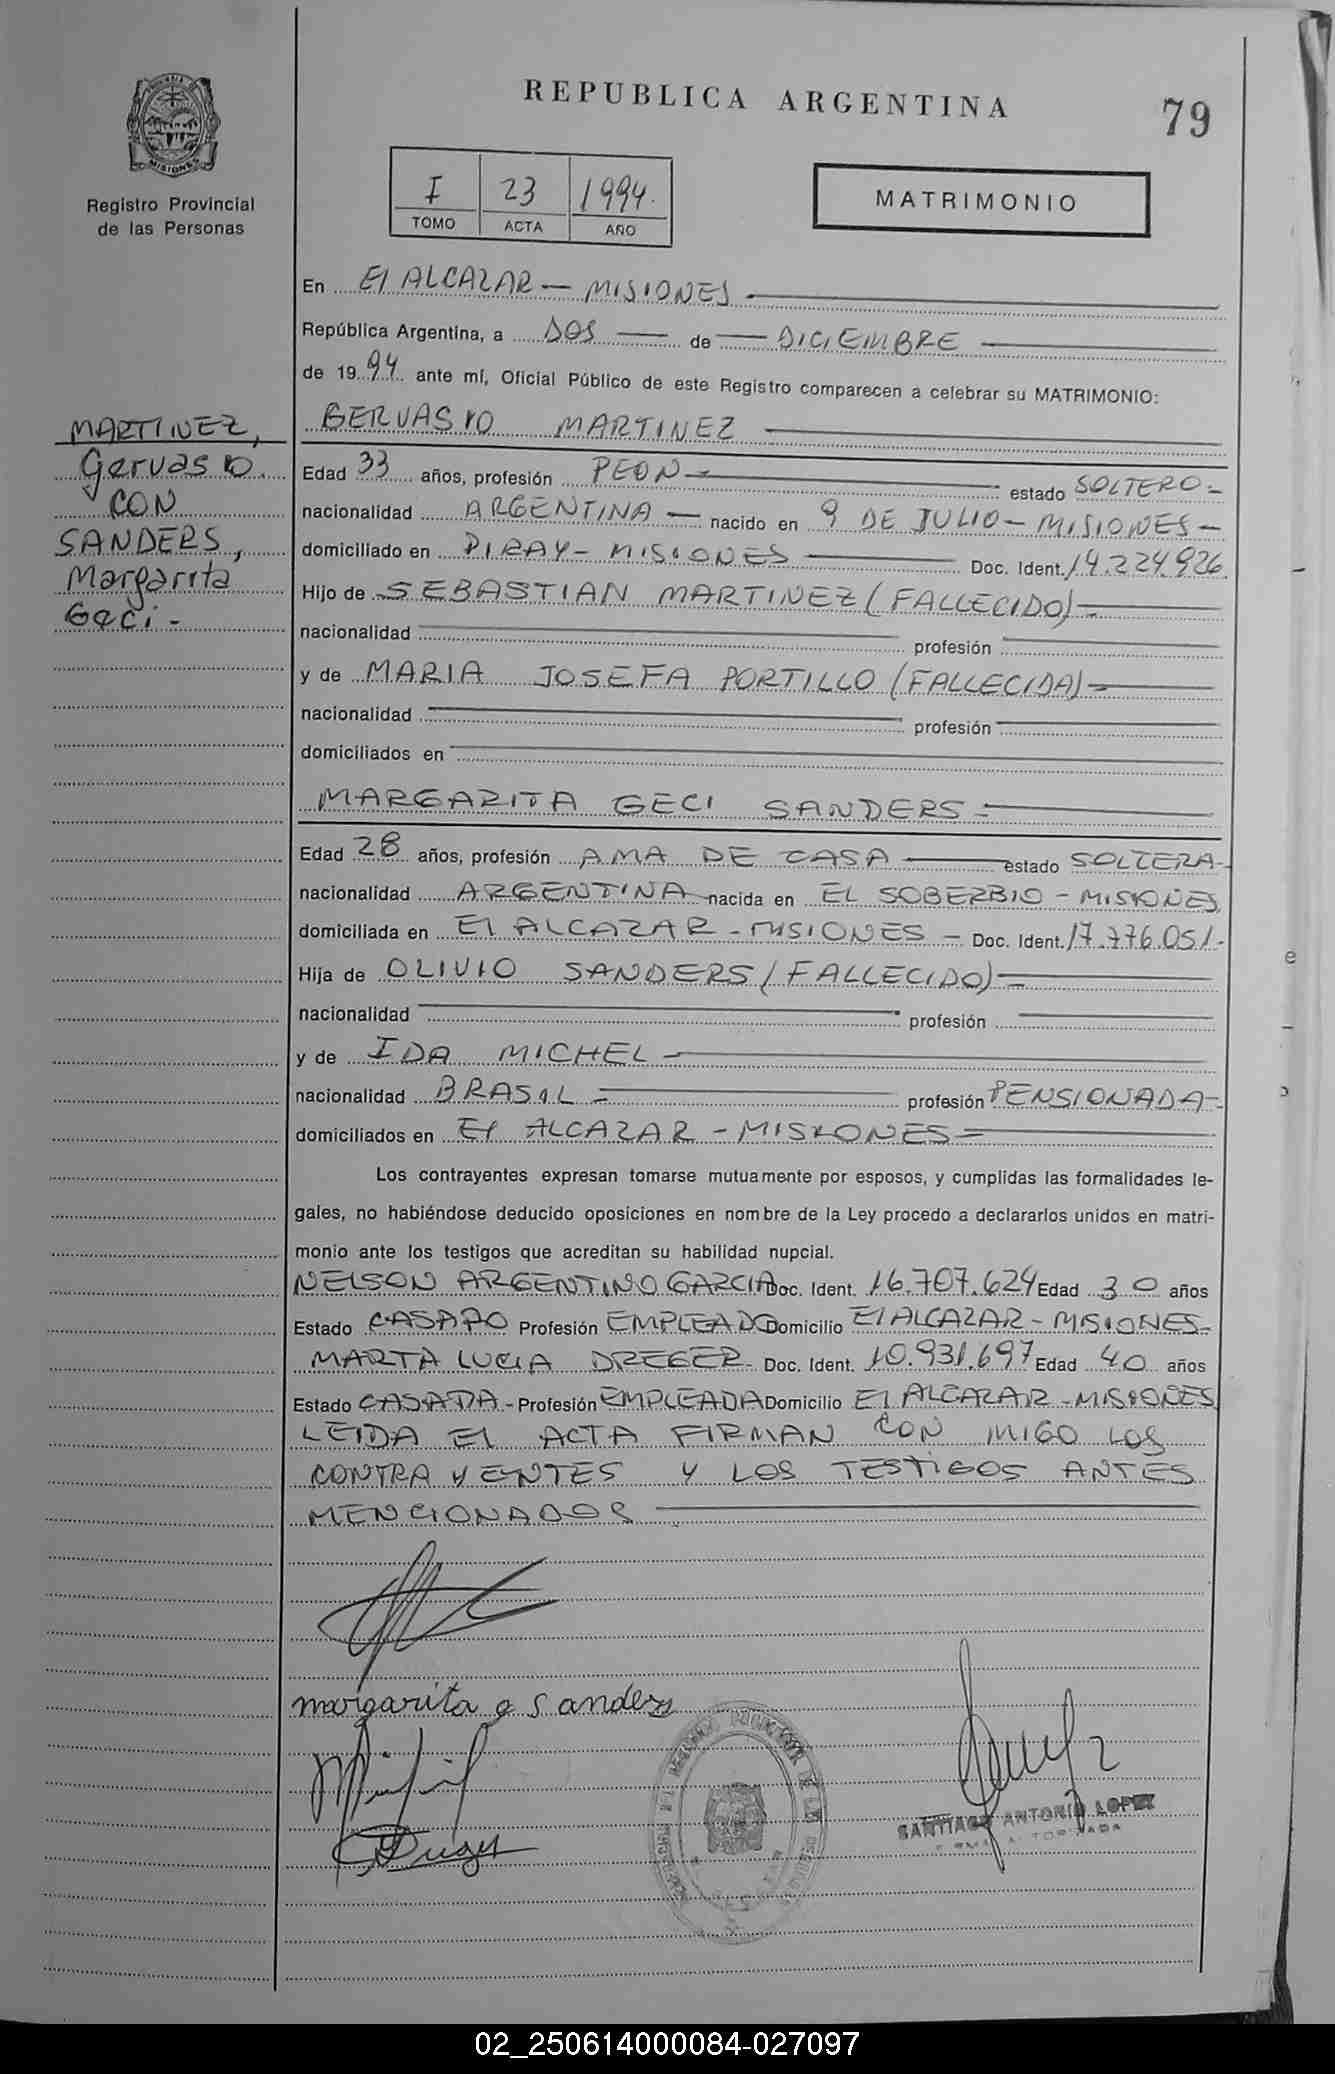 REPUBLICA ARGENTINA
79
MISIONES
Registro Provincial
de las Personas
I 23 1994.
TOMO ACTA AÑO
MATRIMONIO
En El ALCAZAR — MISIONES
República Argentina, a DOS — de — DICIEMBRE
de 1994 ante mí, Oficial Público de este Registro comparecen a celebrar su MATRIMONIO:
MARTINEZ,
Gervasio.
CON
SANDERS,
Margarita
Geci -
GERVASIO MARTINEZ
Edad 33 años, profesión PEON - estado SOLTERO -
nacionalidad ARGENTINA — nacido en 9 DE JULIO - MISIONES -
domiciliado en PIRAY - MISIONES Doc. Ident. 14.224.926
Hijo de SEBASTIAN MARTINEZ (FALLECIDO) -
nacionalidad profesión
y de MARIA JOSEFA PORTILLO (FALLECIDA) -
nacionalidad profesión
domiciliados en
MARGARITA GECI SANDERS -
Edad 28 años, profesión AMA DE CASA estado SOLTERA -
nacionalidad ARGENTINA nacida en EL SOBERBIO - MISIONES
domiciliada en El ALCAZAR - MISIONES - Doc. Ident. 17.776.051.
Hija de OLIVIO SANDERS (FALLECIDO) -
nacionalidad profesión
y de IDA MICHEL -
nacionalidad BRASIL - profesión PENSIONADA -
domiciliados en El ALCAZAR - MISIONES -
Los contrayentes expresan tomarse mutuamente por esposos, y cumplidas las formalidades le-
gales, no habiéndose deducido oposiciones en nombre de la Ley procedo a declararlos unidos en matri-
monio ante los testigos que acreditan su habilidad nupcial.
NELSON ARGENTINO GARCIA Doc. Ident. 16.707.624 Edad 30 años
Estado CASADO Profesión EMPLEADO Domicilio El ALCAZAR - MISIONES -
MARTA LUCIA DREGER - Doc. Ident. 10.931.697 Edad 40 años
Estado CASADA - Profesión EMPLEADA Domicilio El ALCAZAR - MISIONES
LEIDA El ACTA FIRMAN CON MIGO LOS
CONTRAYENTES Y LOS TESTIGOS ANTES
MENCIONADOS
margarita g Sanders
SANTIAGO ANTONIO LOPEZ
02_250614000084-027097